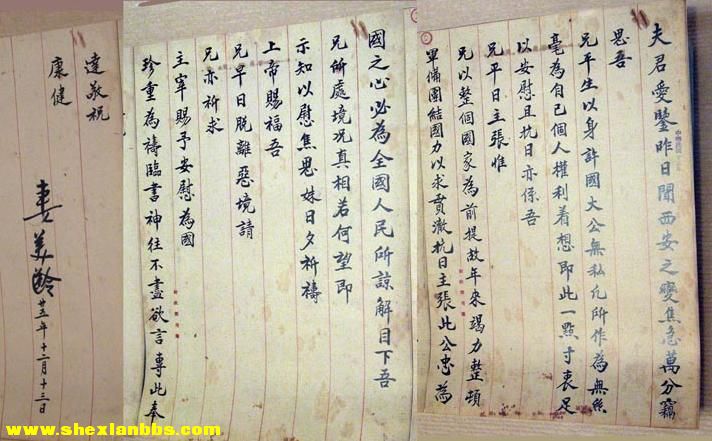 夫君愛鑒昨日聞西安之變焦急萬分竊
思吾
兄平生以身許國大公無私凡所作為無絲
毫為自己個人權利着想即此一點寸衷足
以安慰且抗日亦係吾
兄平日主張惟
兄以整個國家為前提故年來竭力整頓
軍備團結國力以求貫澈抗日主張此公忠為
國之心必為全國人民所諒解目下吾
兄所處境况真相若何望即
示知以慰焦思妹日夕祈禱
上帝賜福吾
兄早日脫離惡境請
兄亦祈求
主宰賜予安慰為國
珍重為禱臨書神往不盡欲言專此奉
達敬祝
康健
妻美齡
廿五年十二月十三日
www.shexianbbs.com